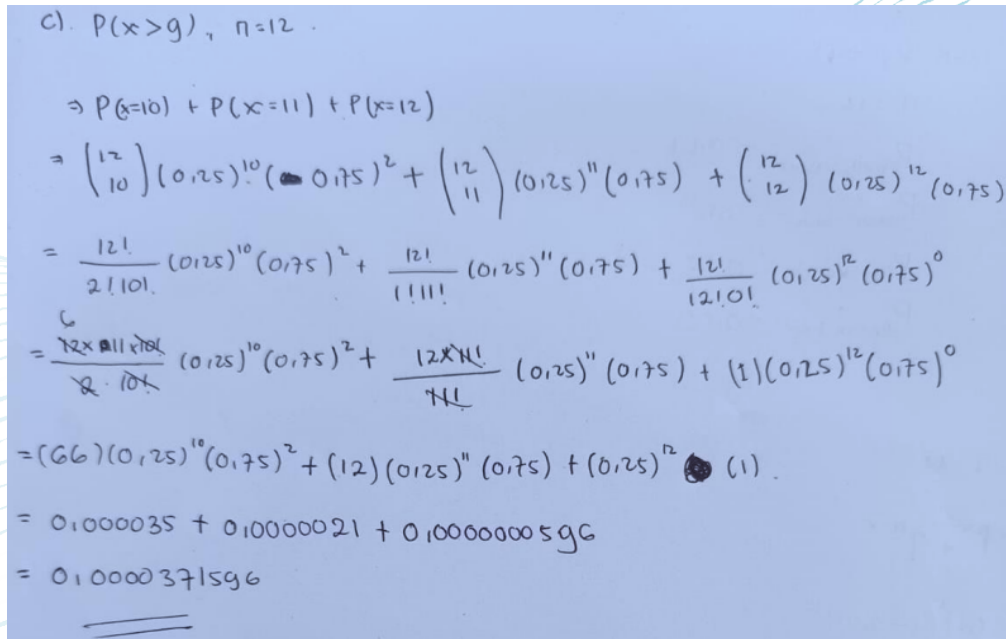 c). P(x>9), n=12.
⇒ P(x=10) + P(x=11) + P(x=12)
= (12 10) (0,25)^10 (0,75)^2 + (12 11) (0,25)^11 (0,75) + (12 12) (0,25)^12 (0,75)
= 12!/2!10! (0,25)^10 (0,75)^2 + 12!/1!11! (0,25)^11 (0,75) + 12!/12!0! (0,25)^12 (0,75)^0
6
= 12×11×10!/2·10! (0,25)^10 (0,75)^2 + 12×11!/11! (0,25)^11 (0,75) + (1)(0,25)^12 (0,75)^0
= (66)(0,25)^10 (0,75)^2 + (12)(0,25)^11 (0,75) + (0,25)^12 (1).
= 0,000035 + 0,0000021 + 0,0000000596
= 0,0000371596